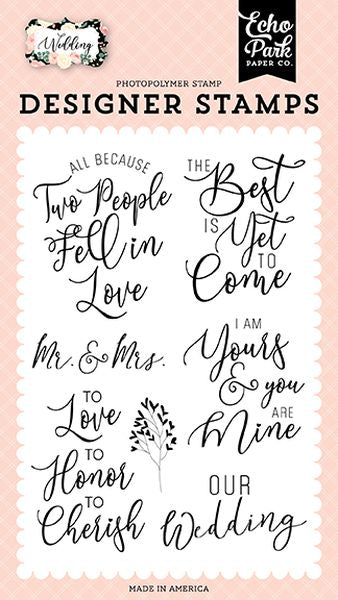 Wedding
Echo
Park
PAPER CO.
PHOTOPOLYMER STAMP
DESIGNER STAMPS
ALL BECAUSE
Two People
Fell in
Love
THE
Best
IS Yet
TO
Come
Mr. & Mrs.
I AM
Yours
& you
ARE
Mine
TO
Love
TO
Honor
TO
Cherish
OUR
Wedding
MADE IN AMERICA